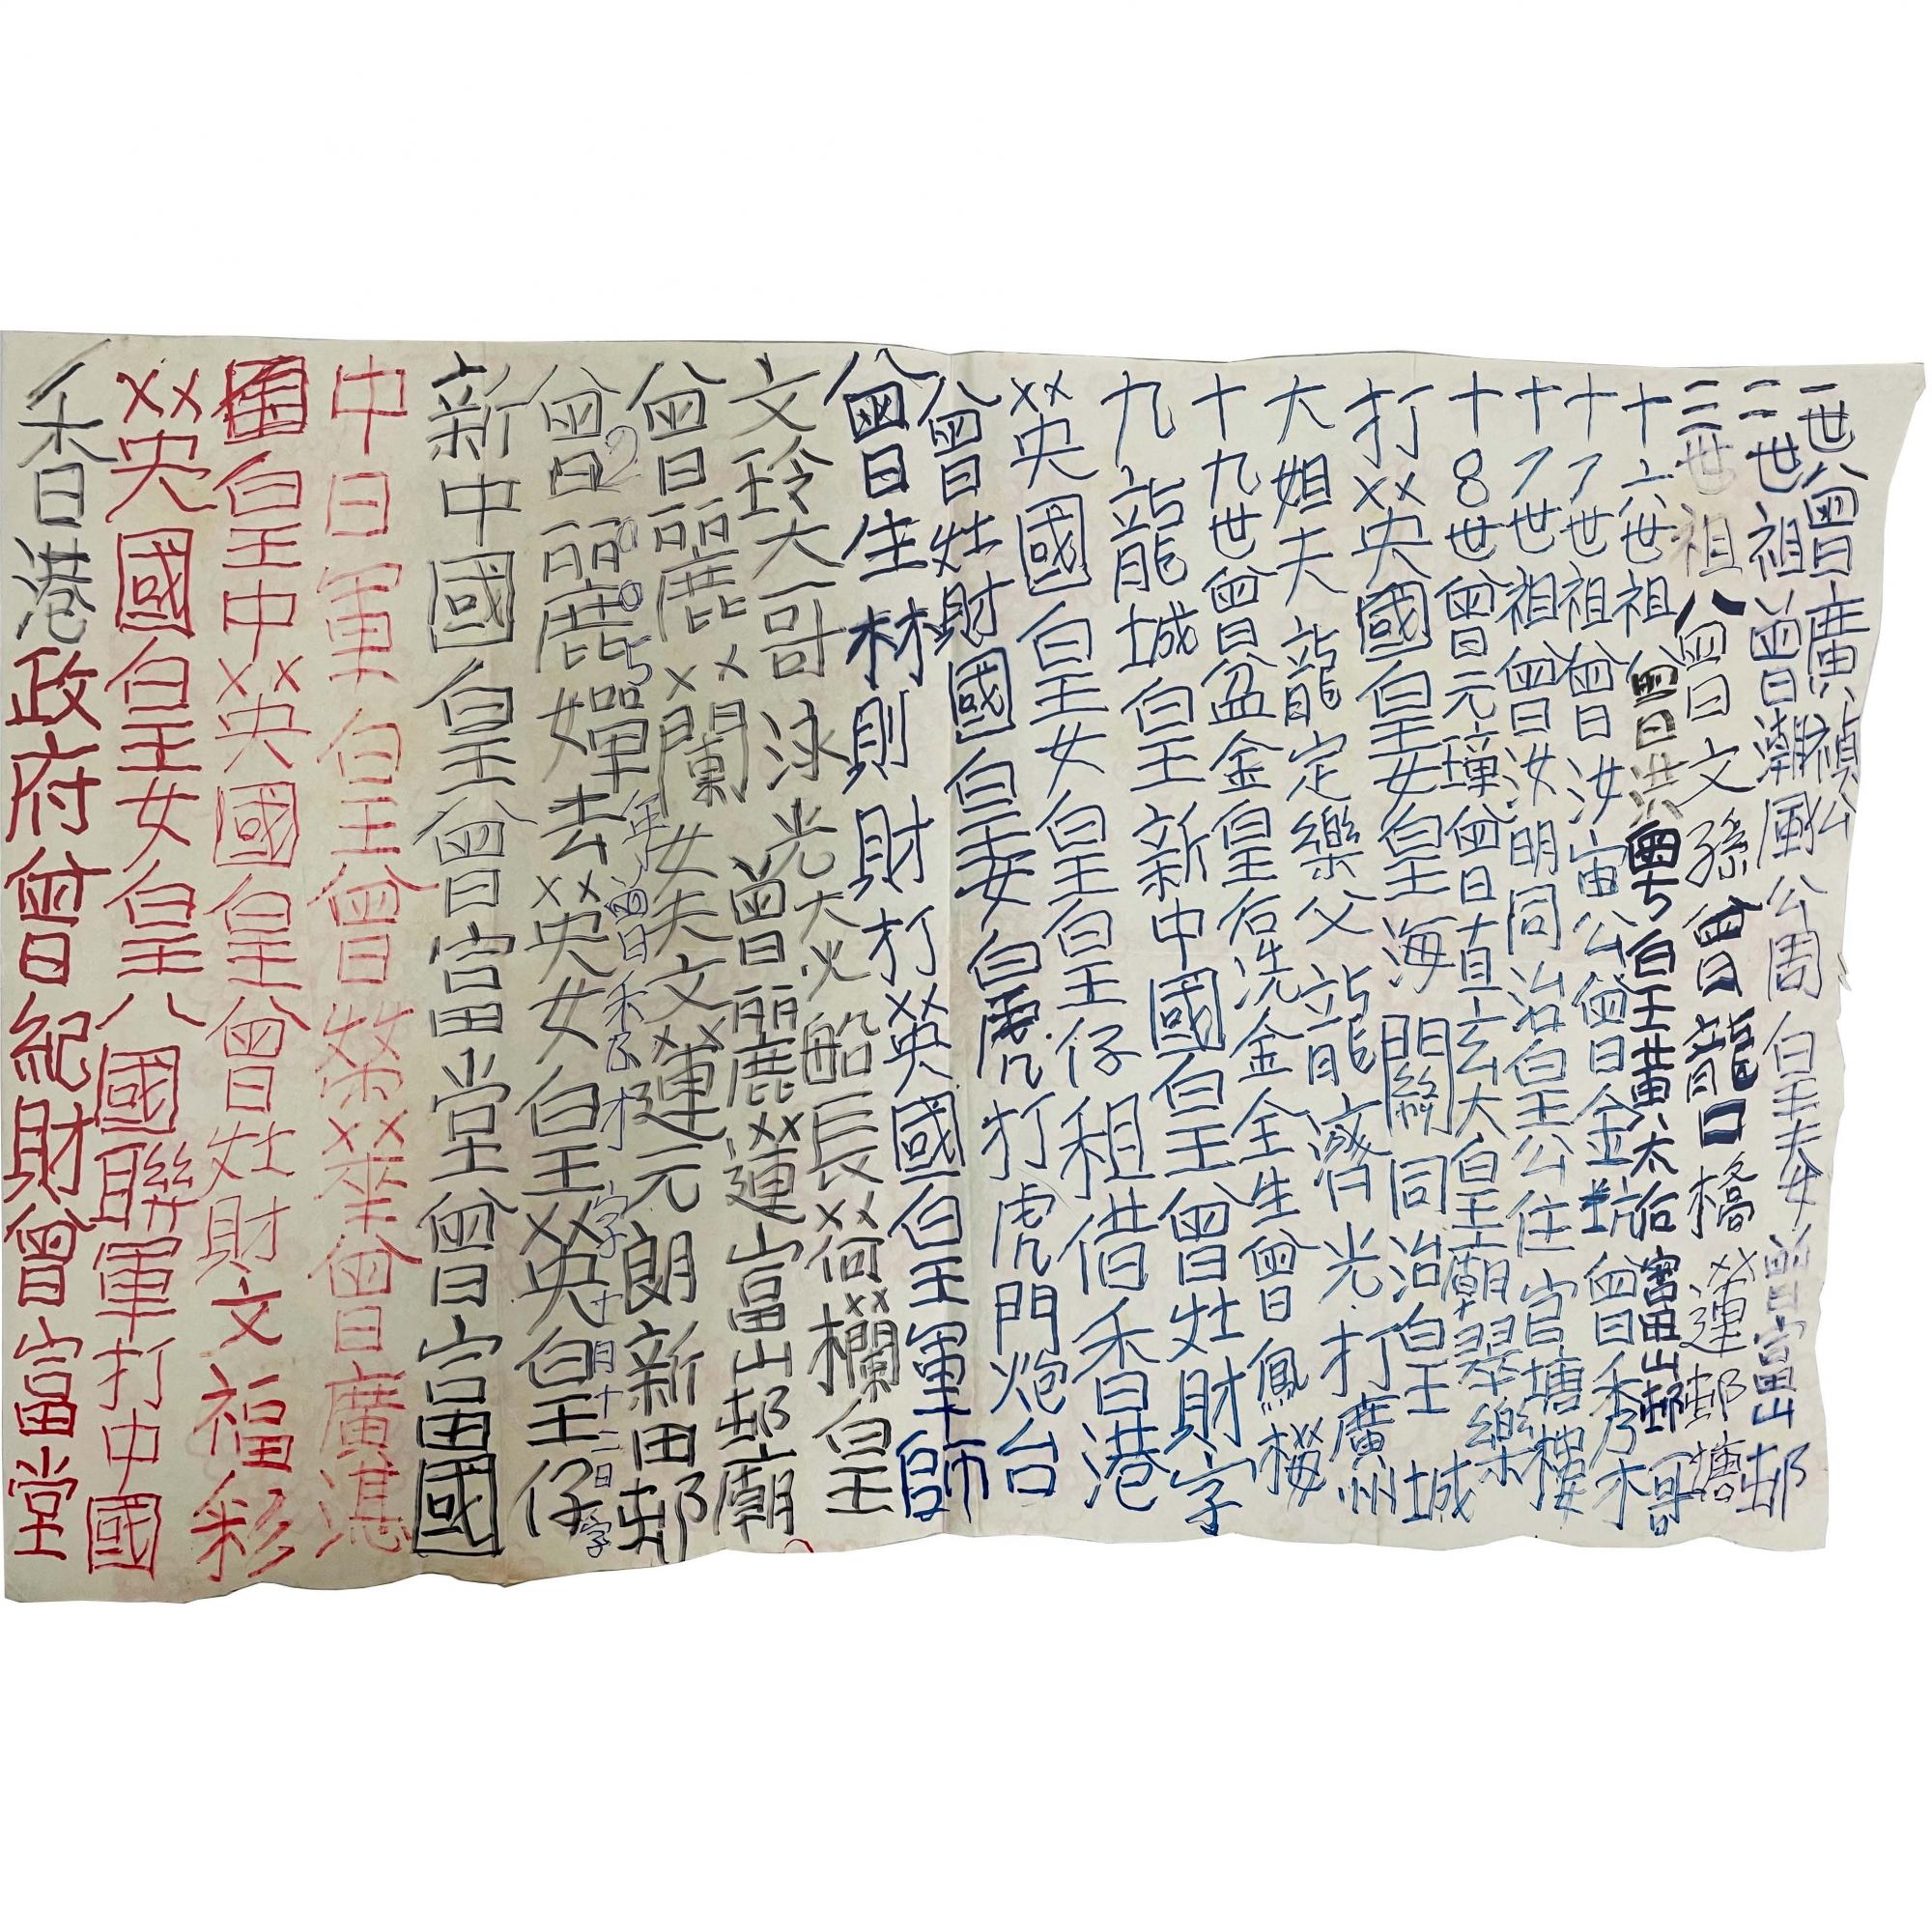 一世曾廣禎公
二世祖曾日潮風公周皇夫女富山邨
三世祖曾文孫曾龍口橋蓮邨塘
十六世祖曾洪粵皇黃大仙富山邨哥
十7世祖曾汝宙公曾金坑曾秀木
十7世祖曾汝明同治皇公住官塘樓
十8世曾元璋曾直玄大皇廟翠樂
打英國皇女皇海關同治皇城
大姐夫龍定樂父龍濟光打廣州
十九世曾盆金皇后冼金全生曾鳳樓
九龍城皇新中國皇曾灶財字
英國皇女皇皇仔租借香港
曾灶財國皇女白虎打虎門炮台
曾生林則財打英國皇軍師
文玲大哥泳光大火船長荷蘭皇
曾麗蓮富山邨廟
曾麗蘭女夫文蓮元朗新田邨
2005年曾秀才字十月十二日字
曾麗嬋去英女皇英皇仔
新中國皇曾富堂曾富國
中日軍皇曾榮華曾廣湛
國皇中英國皇曾灶財文福彩
英國皇女皇八國聯軍打中國
香港政府曾紀財曾富堂